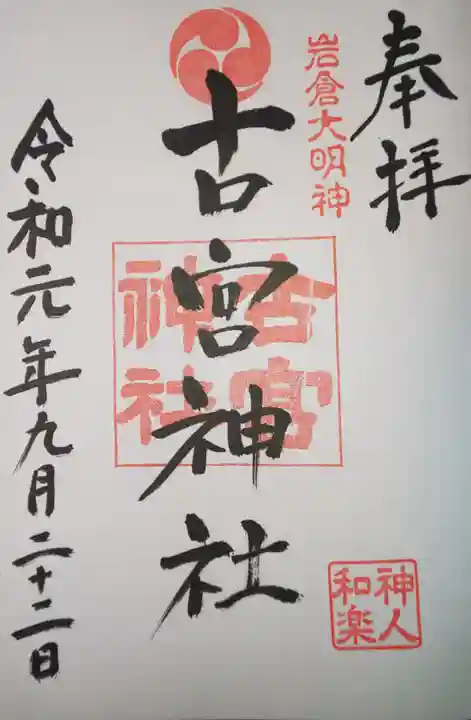 奉拝
岩倉大明神
古宮神社
古宮
神社
神人
和楽
令和元年九月二十二日